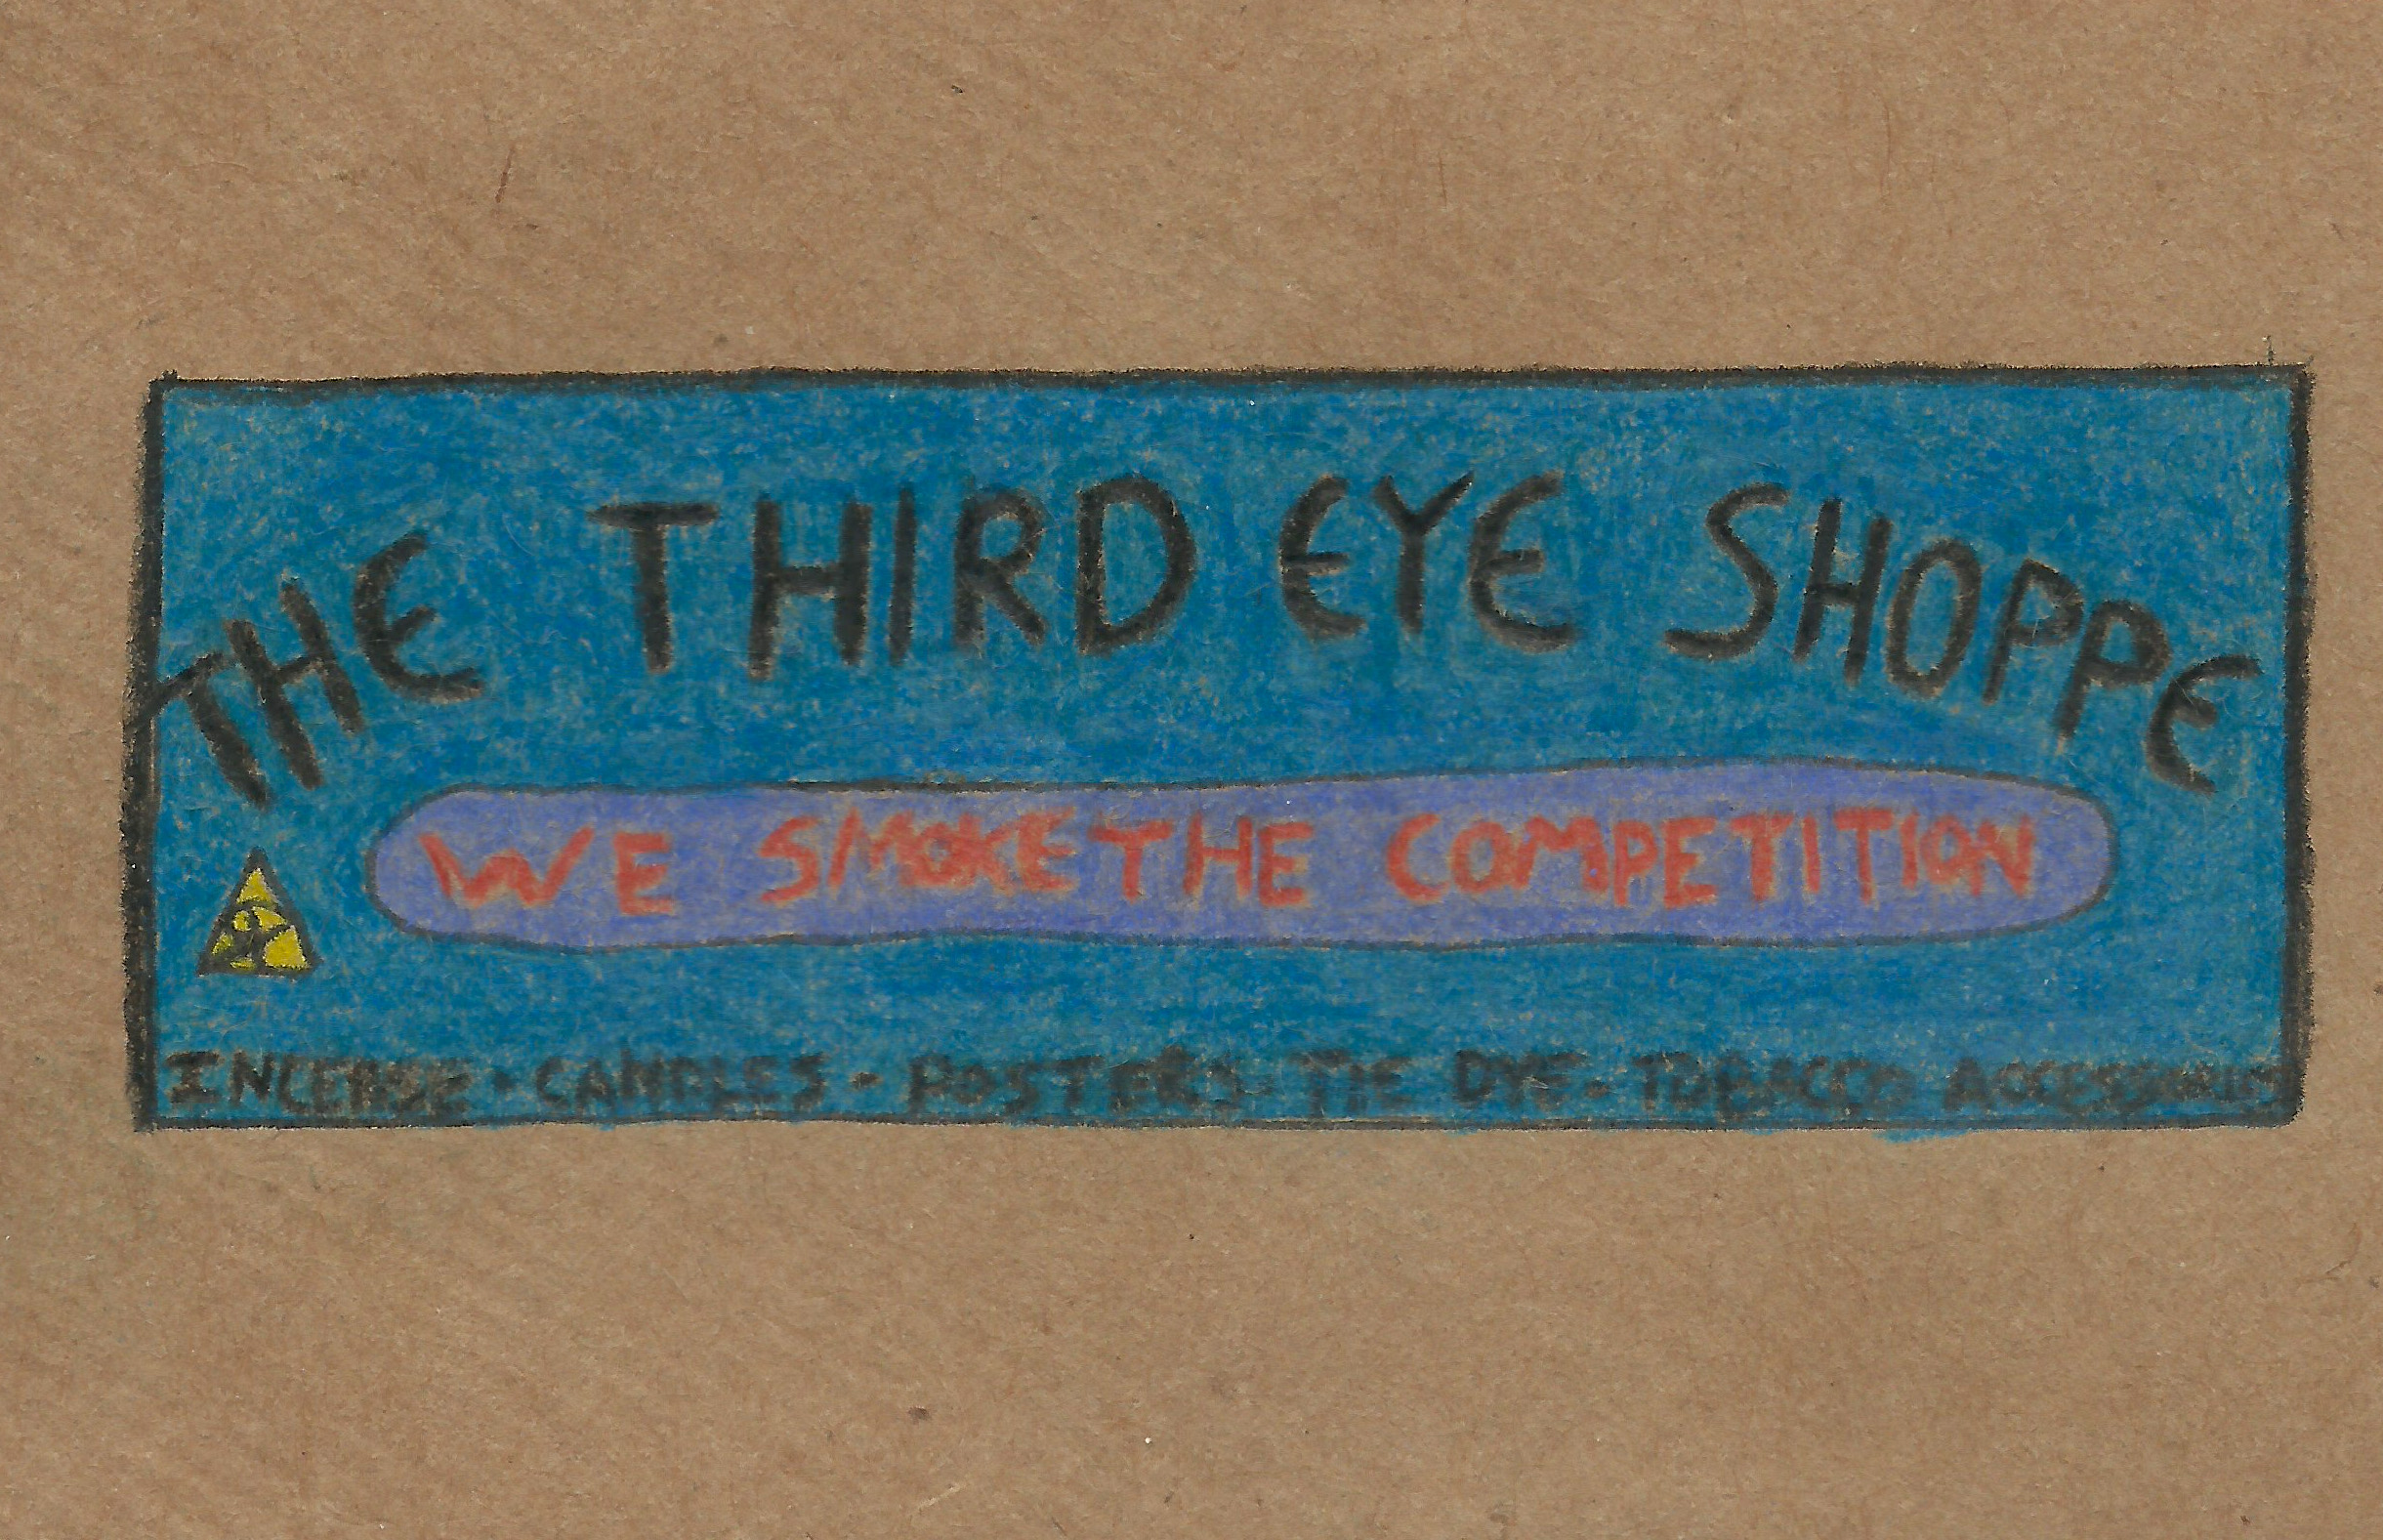 THE THIRD EYE SHOPPE
WE SMOKE THE COMPETITION
INCENSE • CANDLES • POSTERS • TIE DYE • TOBACCO ACCESSORIES